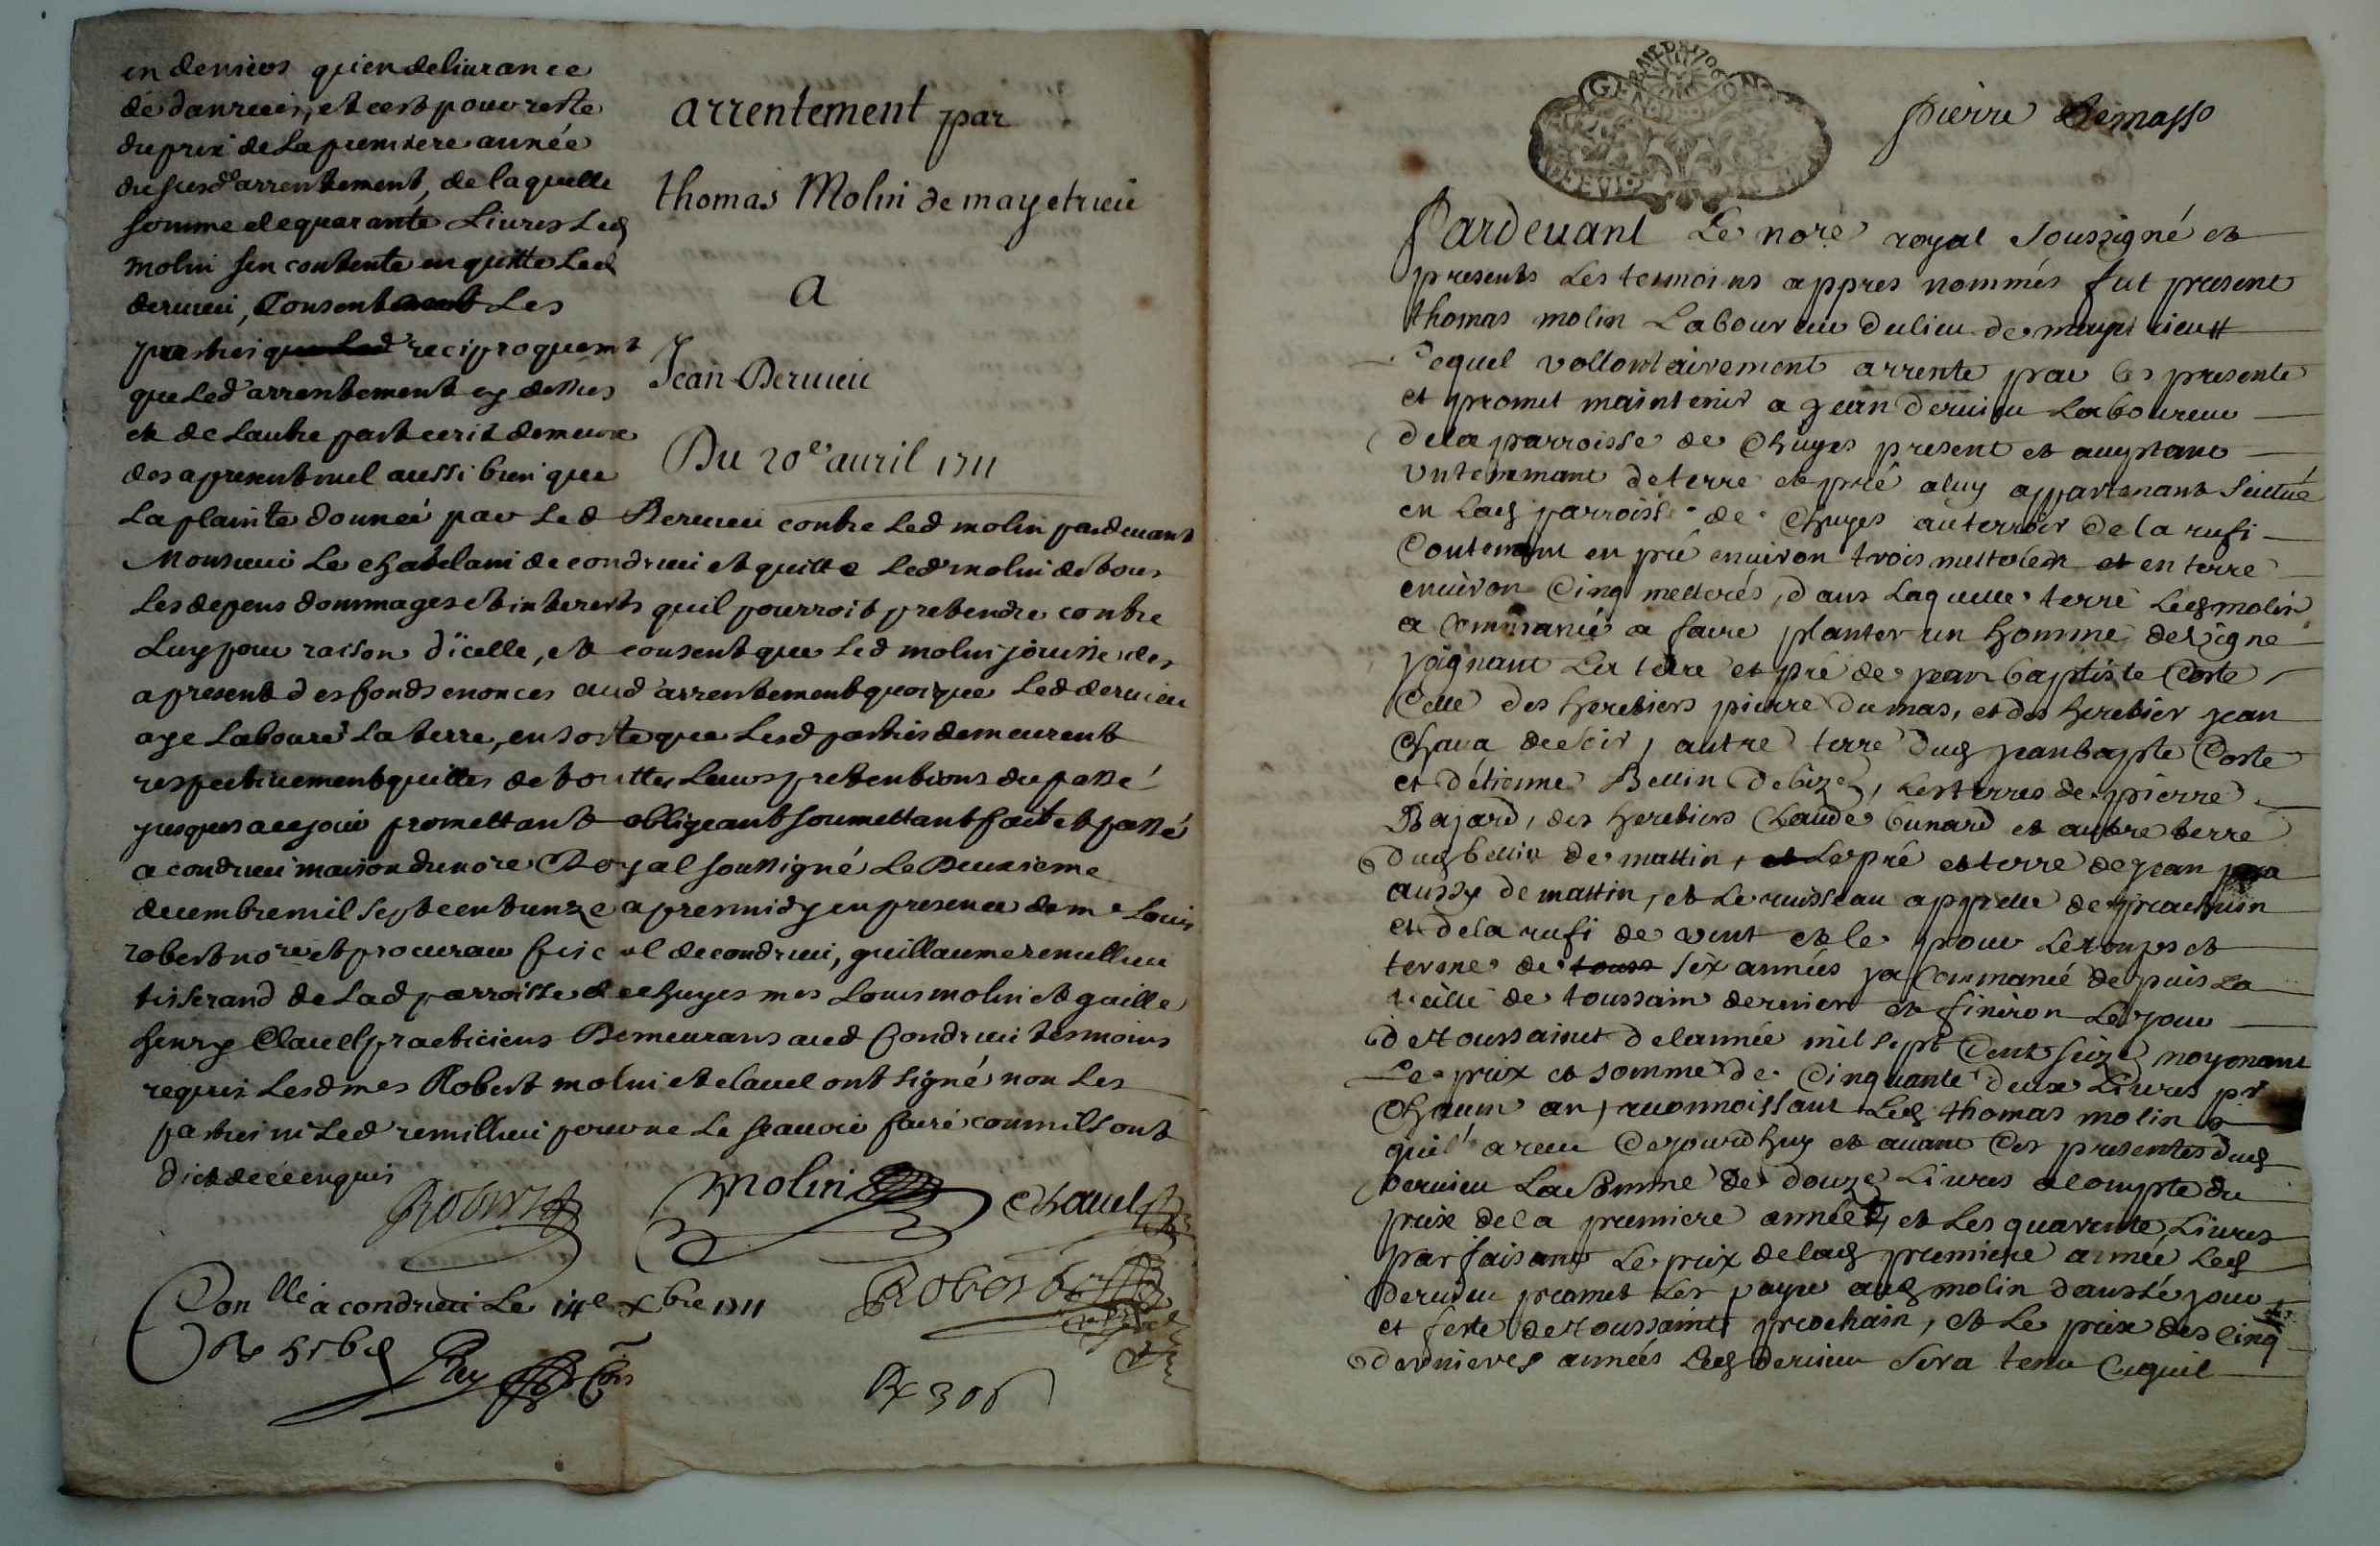 en deniers qu'en delivrance
de danrees, et cest pour reste
du prix de la premiere année
du susd arrentement, de laquelle
somme de quarante Livres Led
molin sen contente en quitte Led
dervieu, Consent Les
parties reciproquemt
que Led arrentement cy dessus
et de lautre part ecrit demeure
des apresent nul aussi bien que
La plainte donneé par Led Dervieu contre Led molin pardevant
Monsieur Le chatelain de condrieu et quitte Led molin de tous
Les depens dommages et interests quil pourroit pretendre contre
Luy pour raison d'icelle, et consent que Led molin jouisse des
apresent des fonds enonces aud arrentement quoique Led dervieu
aye Labouré La terre, en sorte que Lesd parties demeurent
respectivement quittes de touttes Leurs pretentions du passé
jusques a ce jour promettant obligeant soumettant fait et passé
a condrieu maison du nore Royal soussigné Le Deuxieme
decembre mil sept cent unze apres midy en presence de me Louis
robert nore et procureur fiscal de condrieu, guillaume remillieu
tisserand de Lad parroisse de chuyes mes Louis molin et guille
henry Clavel practiciens Demeurans aud Condrieu tesmoins
requis Lesd mes Robert molin et clavel ont signé non Les
parties ni Led remillieu pour ne Le scavoir faire comm'ils ont
dict de ce enquis
Robert
Molin
Clavel
Con llé a condrieu Le 14e xbre 1711
Rey
Robert
arrentement par
thomas Molin de mayetrieu
A
Jean Dervieu
Du 20e avril 1711
GENERALD 1706
pierre Demasso
Pardevant Le nore royal soussigné et
presents Les temoins appres nommés fut present
thomas molin Laboureur du lieu de
Lequel vollontairement arrente par les presente
et promet maintenir a jean dervieu Laboureur
de la parroisse de Chuyes present et acceptant
un tenemant de terre et pré a luy appartenant scittué
en Lad parroisse de Chuyes au terroir de la rufi
Contenant en pré environ trois metterés et en terre
environ Cinq metterés, dans Laquelle terre Led molin
a Commancé a faire planter un homme de vigne
joignant La terre et pré de jean baptiste Coste
Celle des heretiers pierre dumas, et des heretier jean
Chava de soir, autre terre dud jean bapte Coste
et d'étienne Bellin de bize, Les terres de pierre
Bajard, des heretiers Claude bunard et autre terre
dud bellin de mattin, Le pré et terre de jean
aussy de mattin, et Le ruisseau appellé de
et de la rufi de vent et ce pour Le temps et
terme de six années ja Commancé depuis La
veille de toussain dernier et finiron Le jour
de toussainct de lannée mil sept Cent seize moyenant
Le prix et somme de Cinquante deux Livres pr
Chacun an, reconnoissant Led thomas molin
quil a receu Cejourdhuy et avant Ces presentes dud
Dervieu La somme de douze Livres a compte du
prix de la premiere année, et Les quarente Livres
parfaisant Le prix de lad premiere année Led
dervieu promet Les payer aud molin dans Le jour
et feste de toussaint prochain, et Le prix des cinq
dernieres années Led dervieu sera tenu